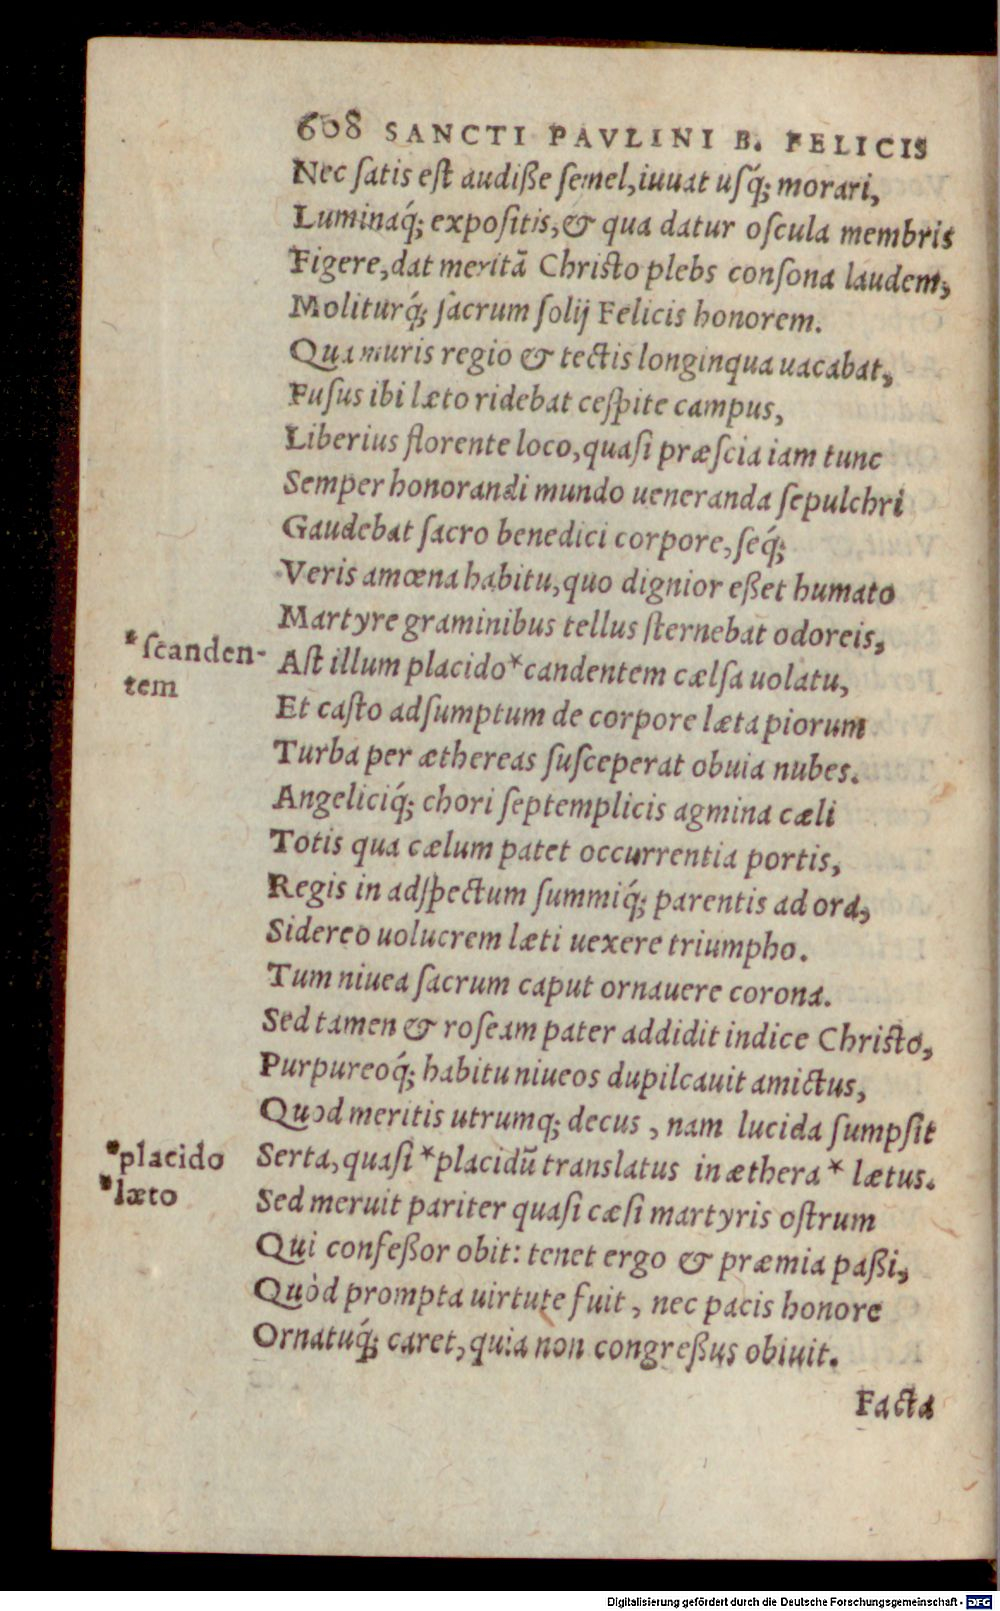 608 SANCTI PAVLINI B. FELICIS
Nec ſatis eſt audiße ſemel, iuuat uſq́; morari,
Luminaq́; expoſitis, & qua datur oſcula membris
Figere, dat meritã Chriſto plebs conſona laudem,
Moliturq́; ſacrum ſolij Felicis honorem.
Qua muris regio & tectis longinqua uacabat,
Fuſus ibi læto ridebat ceſpite campus,
Liberius florente loco, quaſi præſcia iam tunc
Semper honorandi mundo ueneranda ſepulchri
Gaudebat ſacro benedici corpore, ſeq́;
Veris amœna habitu, quo dignior eßet humato
Martyre graminibus tellus ſternebat odoreis,
*ſcanden-
tem
Aſt illum placido *candentem cælſa uolatu,
Et caſto adſumptum de corpore læta piorum
Turba per æthereas ſuſceperat obuia nubes.
Angeliciq́; chori ſeptemplicis agmina cæli
Totis qua cælum patet occurrentia portis,
Regis in adſpectum ſummiq́; parentis ad ora,
Sidereo uolucrem læti uexere triumpho.
Tum niuea ſacrum caput ornauere corona.
Sed tamen & roſeam pater addidit indice Chriſto,
Purpureoq́; habitu niueos dupilcauit amictus,
Quod meritis utrumq; decus, nam lucida ſumpſit
*placido
*læto
Serta, quaſi *placidũ translatus in æthera * lætus.
Sed meruit pariter quaſi cæſi martyris oſtrum
Qui confeßor obit: tenet ergo & præmia paßi,
Quòd prompta uirtute fuit, nec pacis honore
Ornatuq́; caret, quia non congreßus obiuit.
Facta
Digitalisierung gefördert durch die Deutsche Forschungsgemeinschaft - DFG